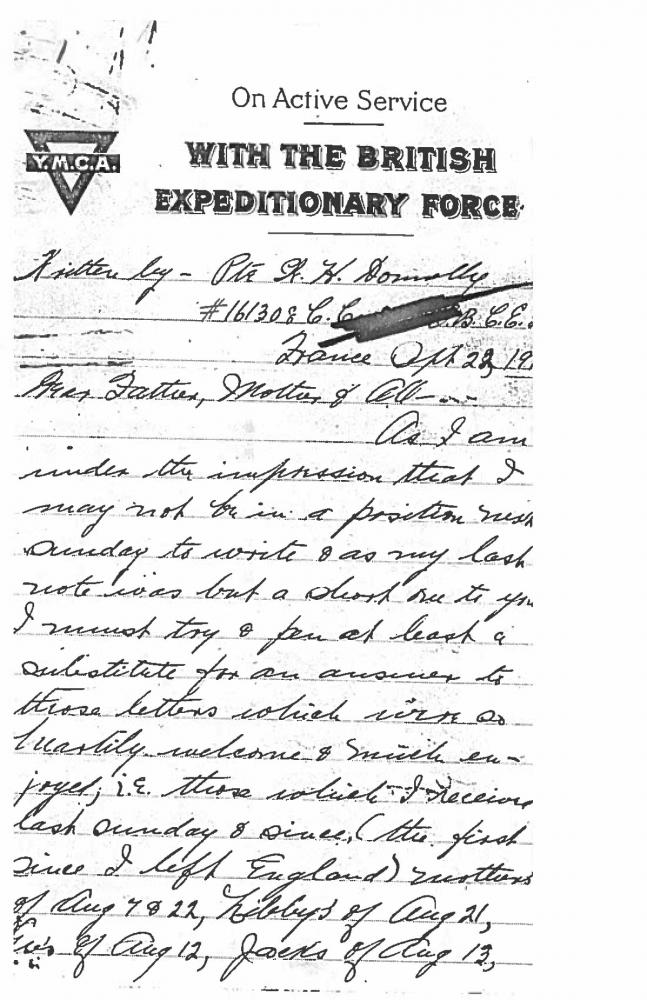 On Active Service
Y.M.C.A.
WITH THE BRITISH
EXPEDITIONARY FORCE.
Written by - Pte R. H. Donnelly
#161308 C. C. B. C. E.
France Sept 22, 19
Dear Father, Mother & All - --
As I am
under the impression that I
may not be in a position next
sunday to write & as my last
note was but a short one to you
I must try & pen at least a
substitute for an answer to
those letters which were so
heartily welcome & much en-
joyed, i.e. those which I receive
last sunday & since, (the first
since I left England) mothers
of Aug 7 & 22, Libby's of Aug 21,
of Aug 12, Jacks of Aug 13,